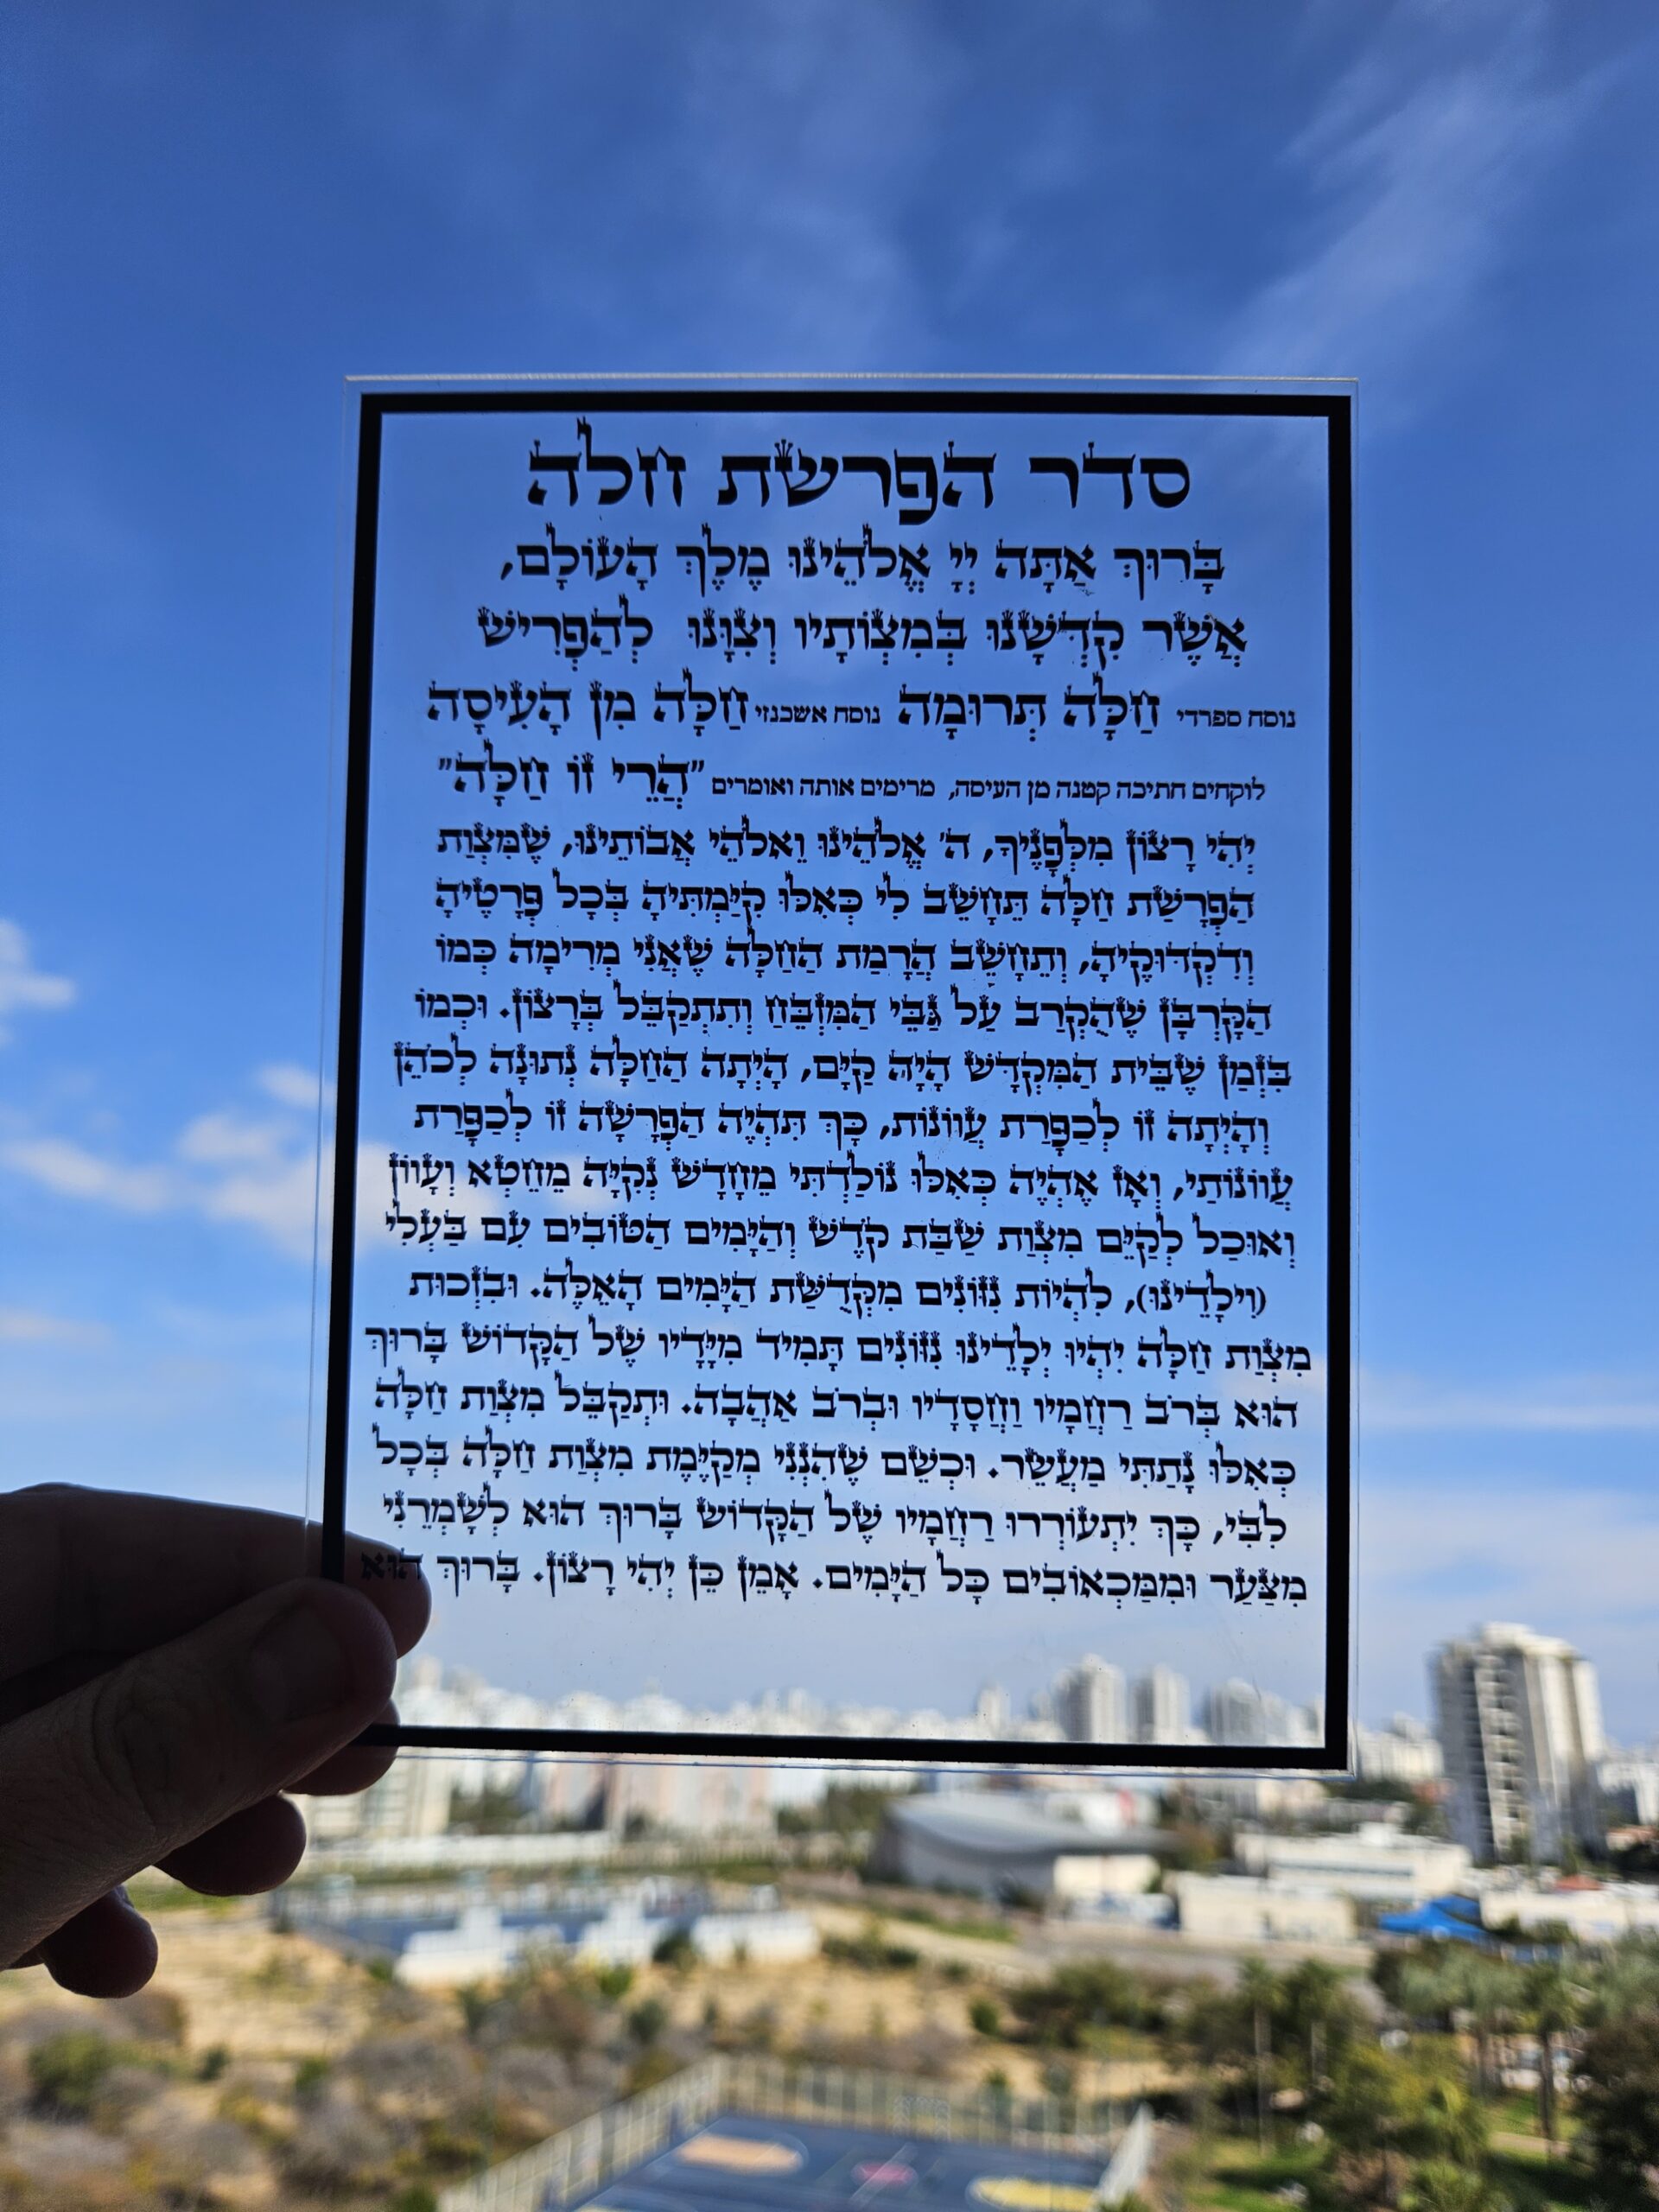 סדר הפרשת חלה
בָּרוּךְ אַתָּה יְיָ אֱלֹהֵינוּ מֶלֶךְ הָעוֹלָם,
אֲשֶׁר קִדְּשָׁנוּ בְּמִצְוֹתָיו וְצִוָּנוּ לְהַפְרִישׁ
נוסח ספרדי חַלָּה תְּרוּמָה נוסח אשכנזי חַלָּה מִן הָעִיסָה
לוקחים חתיכה קטנה מן העיסה, מרימים אותה ואומרים "הֲרֵי זוֹ חַלָּה"
יְהִי רָצוֹן מִלְּפָנֶיךָ, ה' אֱלֹהֵינוּ וֵאלֹהֵי אֲבוֹתֵינוּ, שֶׁמִּצְוַת
הַפְרָשַׁת חַלָּה תֵּחָשֵׁב לִי כְּאִלּוּ קִיַּמְתִּיהָ בְּכָל פְּרָטֶיהָ
וְדִקְדּוּקֶיהָ, וְתֵחָשֵׁב הֲרָמַת הַחַלָּה שֶׁאֲנִי מְרִימָה כְּמוֹ
הַקָּרְבָּן שֶׁהֻקְרַב עַל גַּבֵּי הַמִּזְבֵּחַ וְתִתְקַבֵּל בְּרָצוֹן. וּכְמוֹ
בִּזְמַן שֶׁבֵּית הַמִּקְדָּשׁ הָיָה קַיָּם, הָיְתָה הַחַלָּה נְתוּנָה לְכֹהֵן
וְהָיְתָה זוֹ לְכַפָּרַת עֲווֹנוֹת, כָּךְ תִּהְיֶה הַפְרָשָׁה זוֹ לְכַפָּרַת
עֲווֹנוֹתַי, וְאָז אֶהְיֶה כְּאִלּוּ נוֹלַדְתִּי מֵחָדָשׁ נְקִיָּה מֵחֵטְא וְעָווֹן
וְאוּכַל לְקַיֵּם מִצְוַת שַׁבַּת קֹדֶשׁ וְהַיָּמִים הַטּוֹבִים עִם בַּעְלִי
(וִילָדֵינוּ), לִהְיוֹת נִזּוֹנִים מִקְּדֻשַּׁת הַיָּמִים הָאֵלֶּה. וּבִזְכוּת
מִצְוַת חַלָּה יִהְיוּ יְלָדֵינוּ נִזּוֹנִים תָּמִיד מִיָּדָיו שֶׁל הַקָּדוֹשׁ בָּרוּךְ
הוּא בְּרֹב רַחֲמָיו וַחֲסָדָיו וּבְרֹב אַהֲבָה. וּתְקַבֵּל מִצְוַת חַלָּה
כְּאִלּוּ נָתַתִּי מַעֲשֵׂר. וּכְשֵׁם שֶׁהִנְנִי מְקַיֶּמֶת מִצְוַת חַלָּה בְּכָל
לִבִּי, כָּךְ יִתְעוֹרְרוּ רַחֲמָיו שֶׁל הַקָּדוֹשׁ בָּרוּךְ הוּא לְשָׁמְרֵנִי
מִצַּעַר וּמִמַּכְאוֹבִים כָּל הַיָּמִים. אָמֵן כֵּן יְהִי רָצוֹן. בָּרוּךְ הוּא